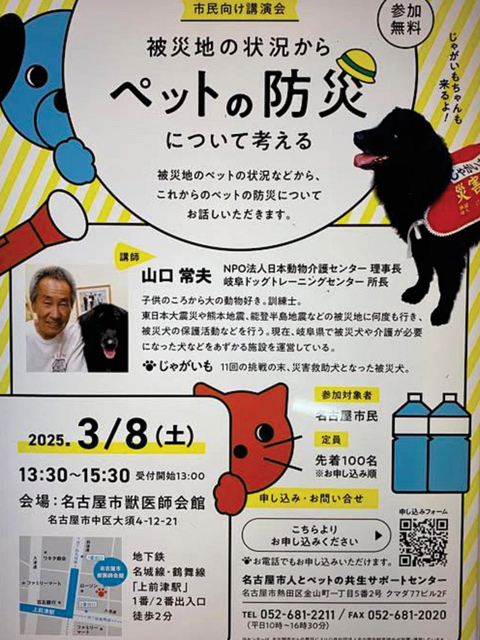 市民向け講演会
参加
無料
被災地の状況から
ペットの防災
について考える
じゃがいもちゃんも
来るよ！
被災地のペットの状況などから、
これからのペットの防災について
お話しいただきます。
講師
山口 常夫
NPO法人日本動物介護センター 理事長
岐阜ドッグトレーニングセンター 所長
子供のころから大の動物好き。訓練士。
東日本大震災や熊本地震、能登半島地震などの被災地に何度も行き、
被災犬の保護活動などを行う。現在、岐阜県で被災犬や介護が必要
になった犬などをあずかる施設を運営している。
じゃがいも 11回の挑戦の末、災害救助犬となった被災犬。
2025. 3/8(土)
13:30〜15:30 受付開始13:00
会場：名古屋市獣医師会館
名古屋市中区大須4-12-21
地下鉄
名城線・鶴舞線
「上前津駅」
1番/2番出入口
徒歩2分
名古屋市
獣医師会館
ローソン
ファミリーマート
上前津駅
参加対象者
名古屋市民
定員
先着100名
※お申込み順
申し込み・お問い合せ
こちらより
お申し込みください
申し込みフォーム
お電話でもお申し込みいただけます。
名古屋市人とペットの共生サポートセンター
名古屋市熱田区金山町一丁目5番2号 クマダ77ビル2F
TEL 052-681-2211 / FAX 052-681-2020
(平日10時〜16時30分)